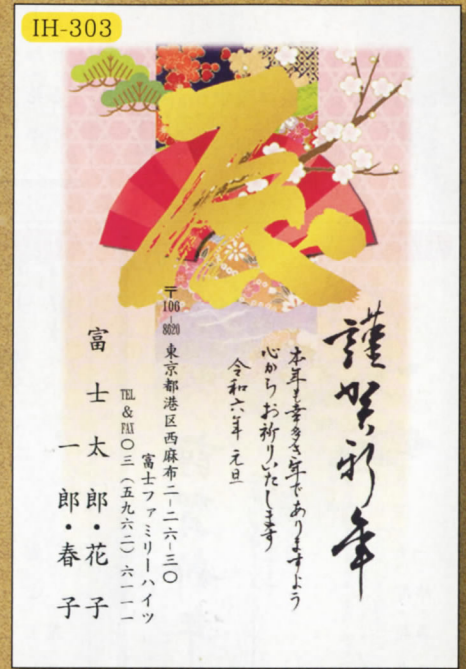 IH-303
辰
謹賀新年
本年も幸多き年でありますよう
心からお祈りいたします
令和六年 元旦
〒106-8620 東京都港区西麻布二-二六-三〇
富士ファミリーハイツ
TEL & FAX 〇三(五九六二)六一一一
富士太郎・花子
一郎・春子